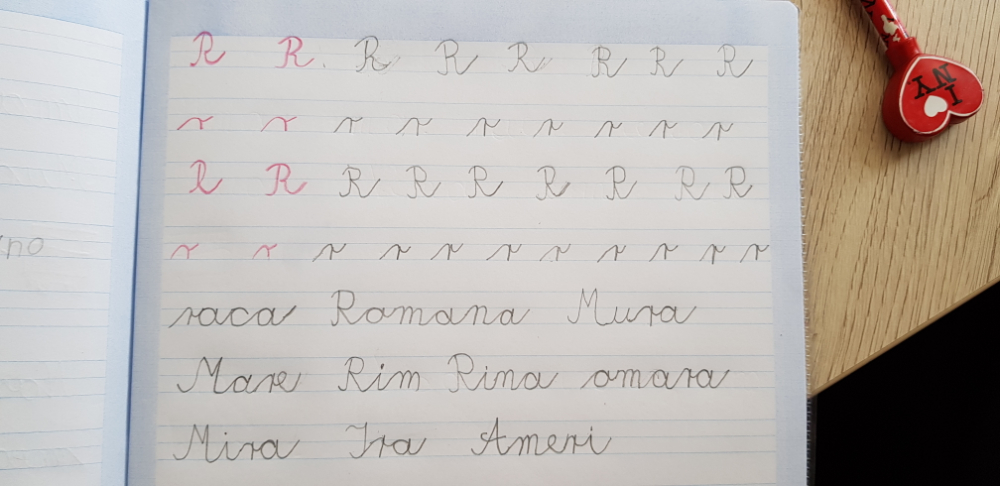 R R R R R R R R
r r r r r r r r r
R R R R R R R R R
r r r r r r r r r r r
raca Romana Mura
Mare Rim Rina omara
Mira Ira Ameri
no
I NY